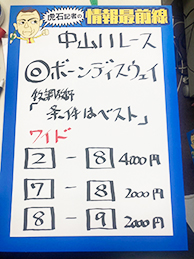 虎石記者の
情報最前線
中山11レース
◎ボーンディスウェイ
「条件はベスト」
ワイド
2－8 4000円
7－8 2000円
8－9 2000円